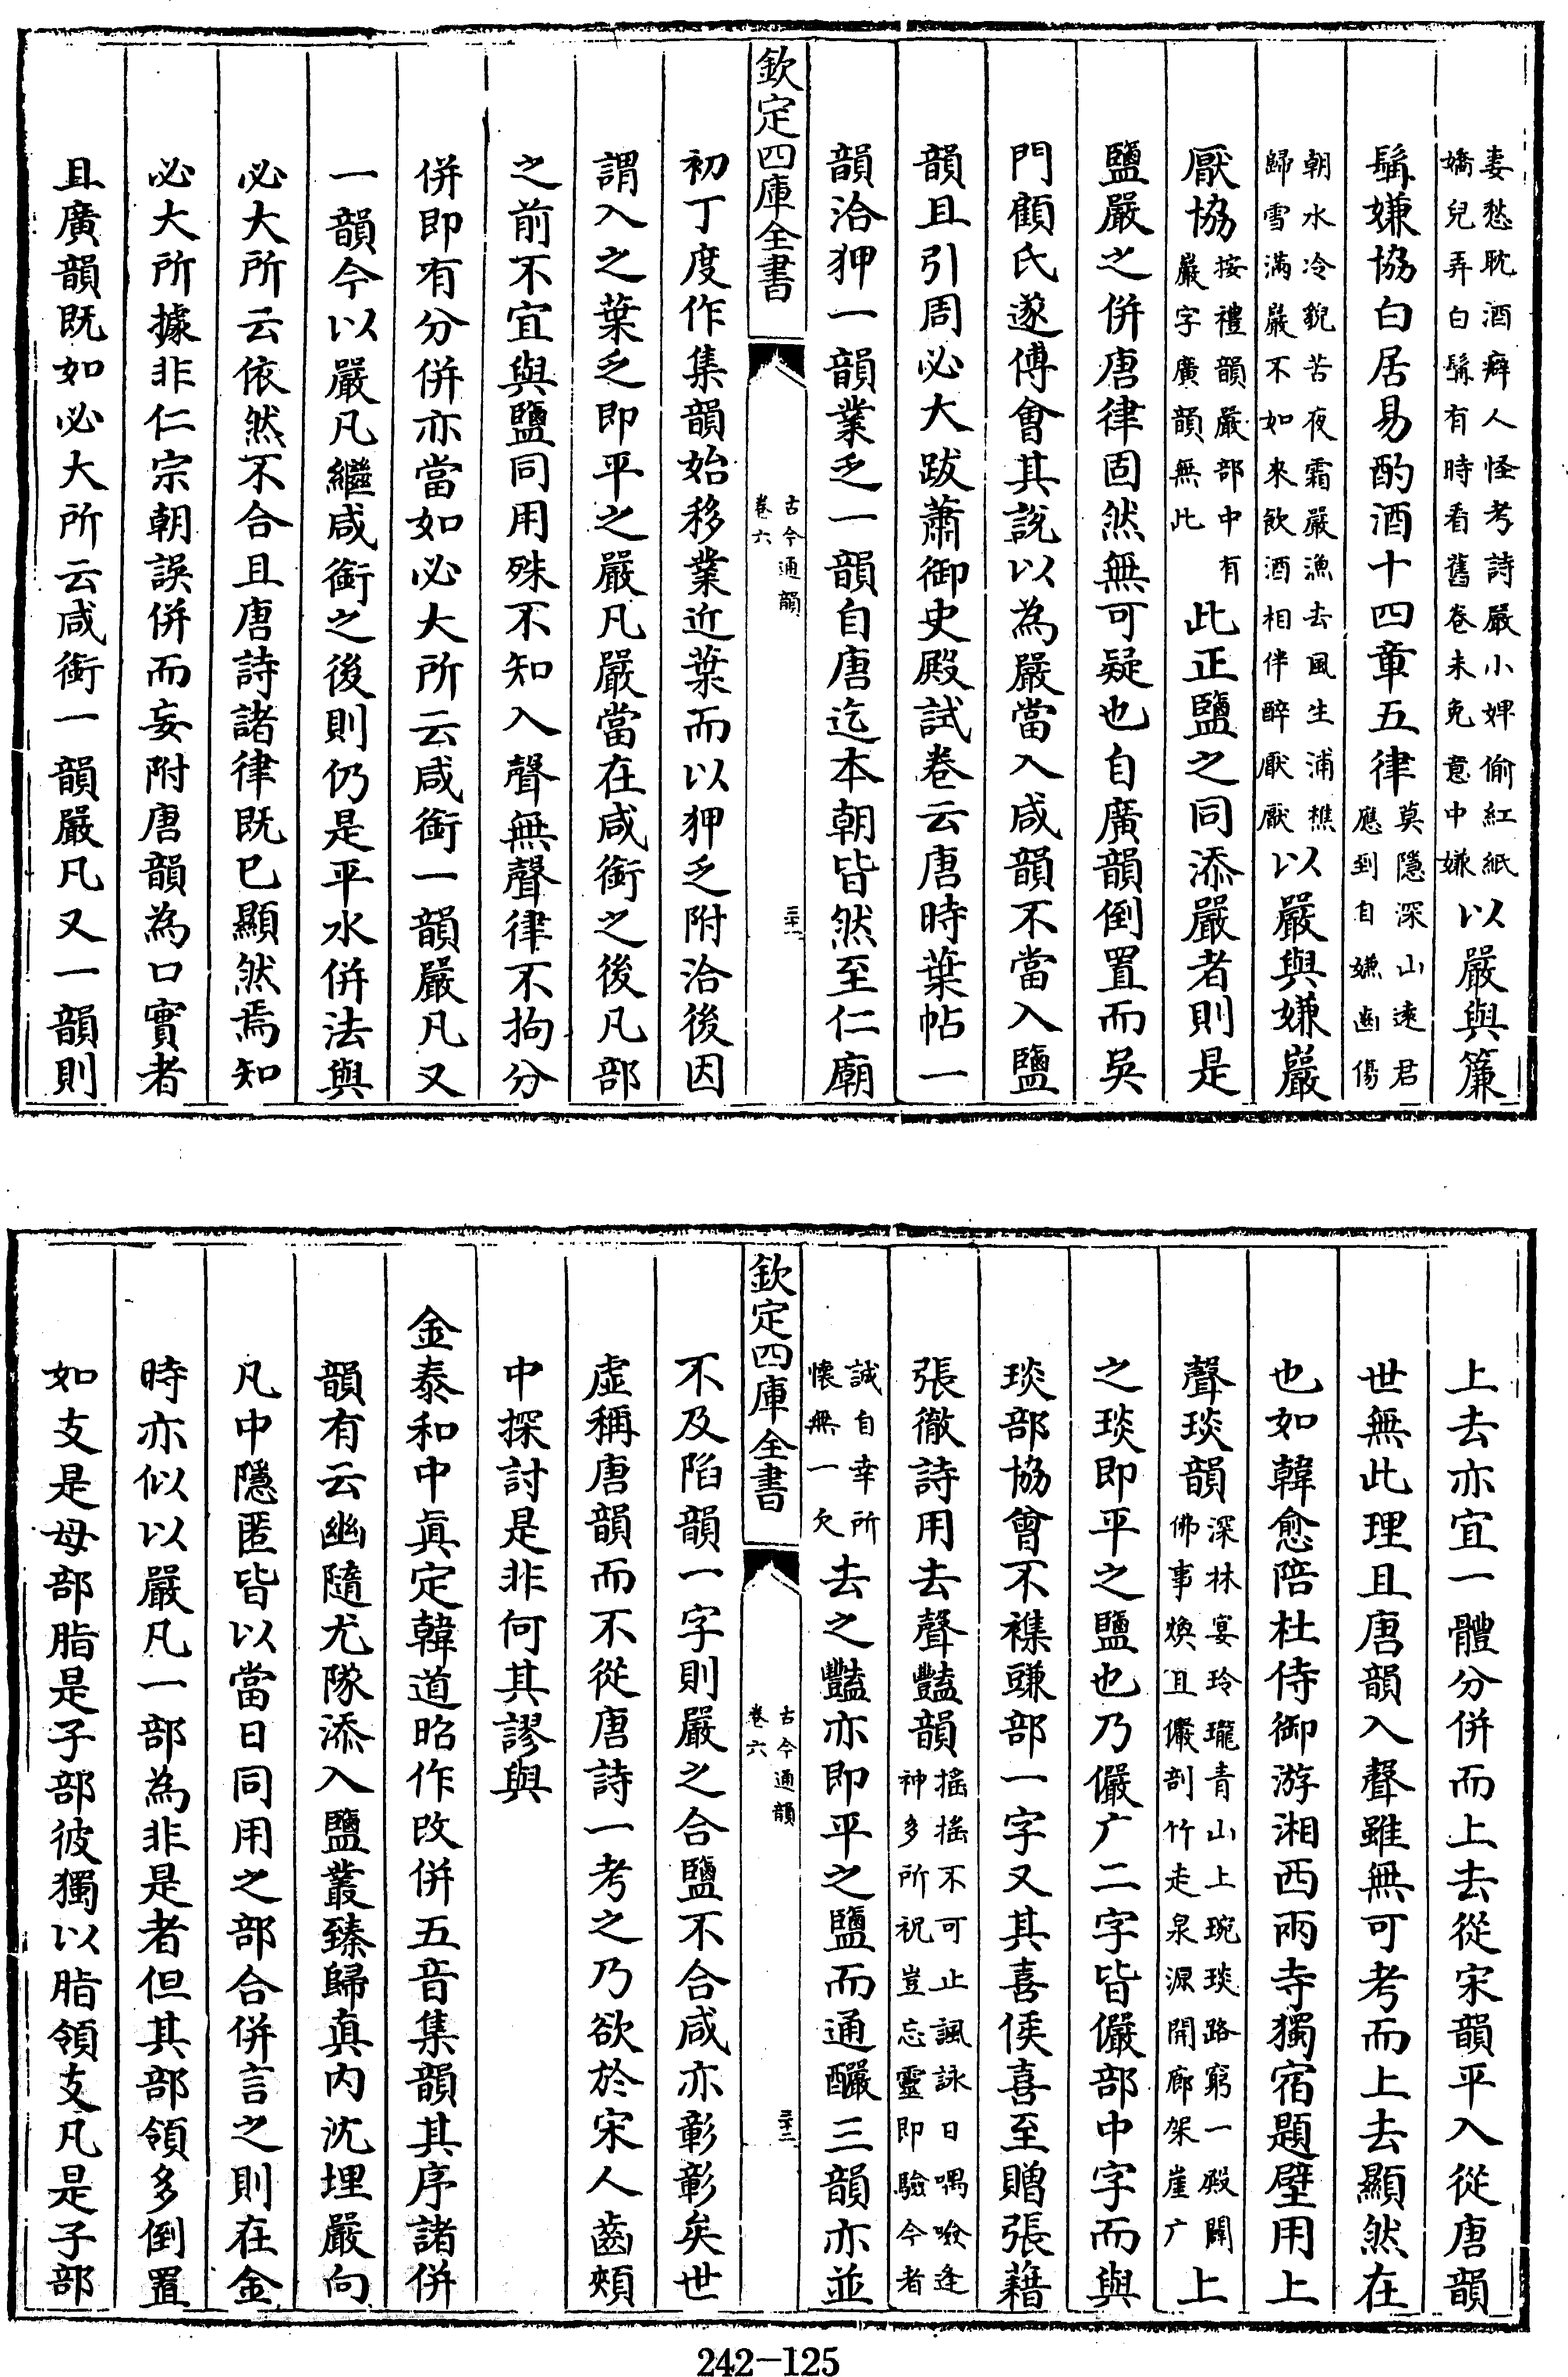 妻愁耽酒癖人怪考詩嚴小婢偷紅紙
嬌兒弄白髯有時看舊卷未免意中嫌以嚴與簾
髯嫌協白居易酌酒十四章五律莫隱深山逺君
應到自嫌齒傷
朝水冷貌苦夜霜嚴漁去風生浦樵
歸雪滿巖不如來飲酒相伴醉厭厭以嚴與嫌巖
厭協按禮韻嚴部中有
巖字廣韻無此此正鹽之同添嚴者則是
鹽嚴之併唐律固然無可疑也自廣韻倒置而吳
門顧氏遂傅會其說以為嚴當入咸韻不當入鹽
韻且引周必大跋蕭御史殿試卷云唐時葉帖一
韻洽狎一韻業乏一韻自唐迄本朝皆然至仁廟
欽定四庫全書
古今通韻
卷六
三十一
初丁度作集韻始移業近葉而以狎乏附洽後因
謂入之葉乏即平之嚴凡嚴當在咸銜之後凡部
之前不宜與鹽同用殊不知入聲無聲律不拘分
併即有分併亦當如必大所云咸銜一韻嚴凡又
一韻今以嚴凡繼咸銜之後則仍是平水併法與
必大所云依然不合且唐詩諸律既已顯然焉知
必大所據非仁宗朝誤併而妄附唐韻為口實者
且廣韻既如必大所云咸銜一韻嚴凡又一韻則
上去亦宜一體分併而上去從宋韻平入從唐韻
世無此理且唐韻入聲雖無可考而上去顯然在
也如韓愈陪杜侍御游湘西兩寺獨宿題壁用上
聲琰韻深林宴玲瓏青山上琬琰路窮一殿闢
佛事煥且儼剖竹走泉源開廊架崖广上
之琰即平之鹽也乃儼广二字皆儼部中字而與
琰部協曾不襍豏部一字又其喜侯喜至贈張籍
張徹詩用去聲豔韻搖搖不可止諷詠日喁噞逢
神多所祝豈忘靈即驗今者
誠自幸所
懷無一欠去之豔亦即平之鹽而通釅三韻亦並
欽定四庫全書
古今通韻
卷六
三十二
不及陷韻一字則嚴之合鹽不合咸亦彰彰矣世
虛稱唐韻而不從唐詩一考之乃欲於宋人齒頰
中探討是非何其謬與
金泰和中真定韓道昭作改併五音集韻其序諸併
韻有云幽隨尤隊添入鹽叢臻歸真內沈埋嚴向
凡中隱匿皆以當日同用之部合併言之則在金
時亦似以嚴凡一部為非是者但其部領多倒置
如支是母部脂是子部彼獨以脂領支凡是子部
242-125